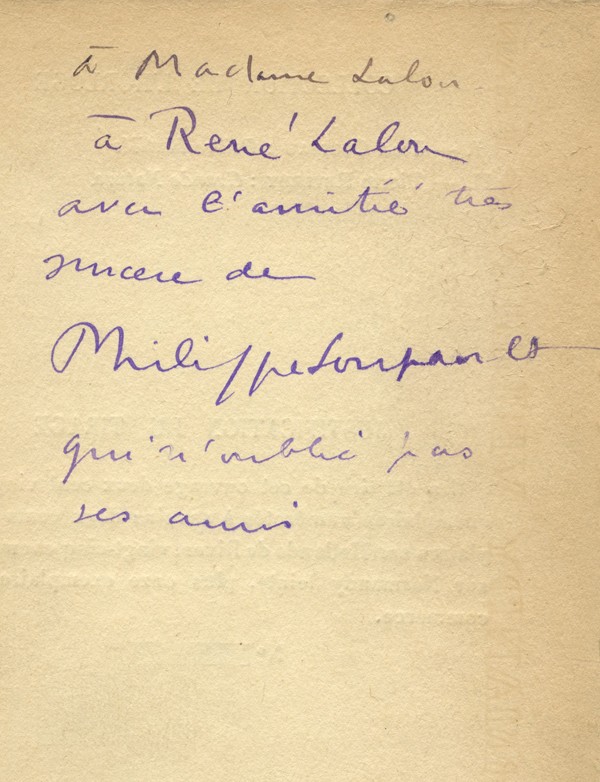 à Madame Lalou
à René Lalou
avec l'amitié très
sincère de
Philippe Soupault
qui n'oublie pas
ses amis